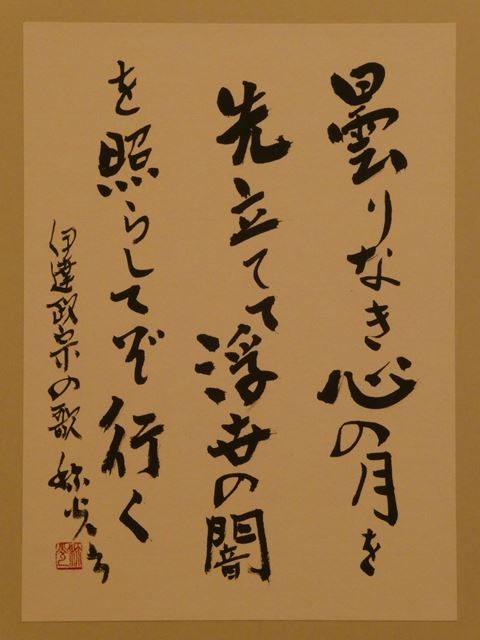 曇りなき心の月を
先立てて浮世の闇
を照らしてぞ行く
伊達政宗の歌